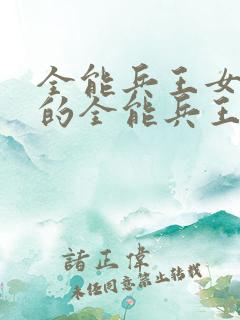 全能兵王女
的全能兵王
諸正偉
未经同意禁止转载